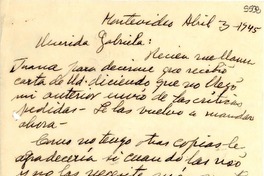 Montevideo Abril 3 - 1945
Querida Gabriela:
Recien me llama
Juana para decirme que recibió
carta de Ud. diciendo que no llegó
mi anterior envio de las críticas
pedidas - Se las vuelvo a mandar
ahora -
Como no tengo otras copias le
agradecería si cuando las usó
y no las necesita